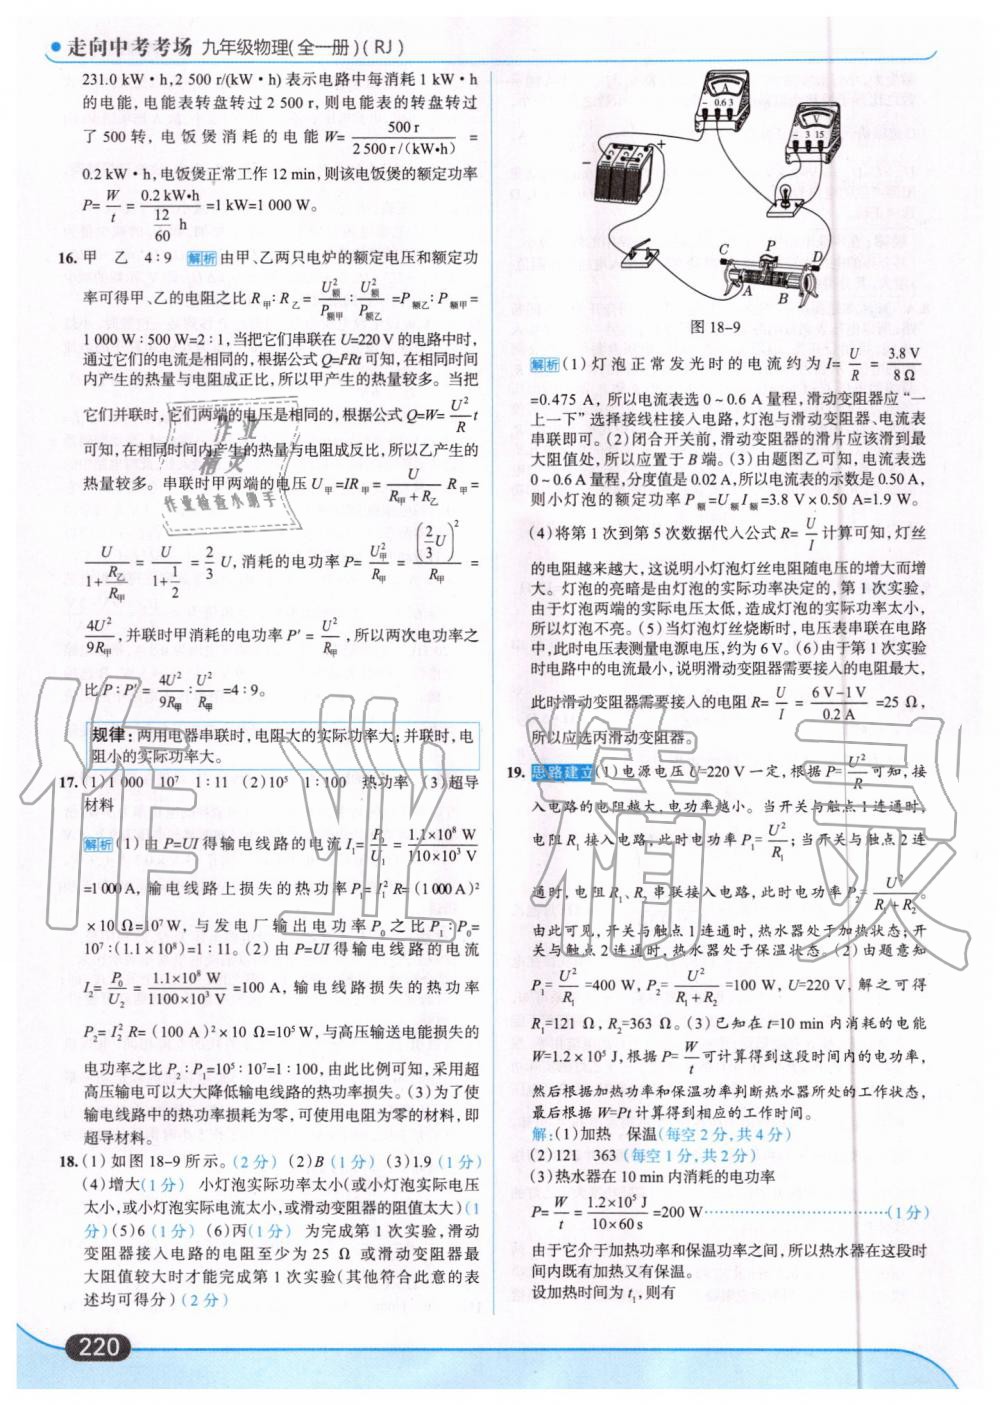 走向中考考场 九年级物理(全一册)(RJ)
231.0 kW·h,2 500 r/(kW·h)表示电路中每消耗1 kW·h
的电能,电能表转盘转过2 500 r,则电能表的转盘转过
了500转,电饭煲消耗的电能W=500 r/2 500 r/(kW·h)=
0.2 kW·h,电饭煲正常工作12 min,则该电饭煲的额定功率
P=W/t=0.2 kW·h/(12/60 h)=1 kW=1 000 W。
16. 甲 乙 4∶9 解析 由甲、乙两只电炉的额定电压和额定功
率可得甲、乙的电阻之比R甲∶R乙=U²额/P额甲∶U²额/P额乙=P额乙∶P额甲=
1 000 W∶500 W=2∶1,当把它们串联在U=220 V的电路中时,
通过它们的电流是相同的,根据公式Q=I²Rt可知,在相同时间
内产生的热量与电阻成正比,所以甲产生的热量较多。当把
它们并联时,它们两端的电压是相同的,根据公式Q=W=U²/R t
可知,在相同时间内产生的热量与电阻成反比,所以乙产生的
热量较多。串联时甲两端的电压U甲=IR甲=U/(R甲+R乙) R甲=
U/(1+R乙/R甲)=U/(1+1/2)=2/3 U,消耗的电功率P=U²甲/R甲=(2/3 U)²/R甲=
4U²/9R甲,并联时甲消耗的电功率P′=U²/R甲,所以两次电功率之
比P∶P′=4U²/9R甲∶U²/R甲=4∶9。
规律:两用电器串联时,电阻大的实际功率大;并联时,电
阻小的实际功率大。
17. (1)1 000 10⁷ 1∶11 (2)10⁵ 1∶100 热功率 (3)超导
材料
解析 (1)由P=UI得输电线路的电流I₁=P₀/U₁=1.1×10⁸ W/110×10³ V
=1 000 A,输电线路上损失的热功率P₁=I₁²R=(1 000 A)²
×10 Ω=10⁷ W,与发电厂输出电功率P₀之比P₁∶P₀=
10⁷∶(1.1×10⁸)=1∶11。(2)由P=UI得输电线路的电流
I₂=P₀/U₂=1.1×10⁸ W/1100×10³ V=100 A,输电线路损失的热功率
P₂=I₂²R=(100 A)²×10 Ω=10⁵ W,与高压输送电能损失的
电功率之比P₂∶P₁=10⁵∶10⁷=1∶100,由此比例可知,采用超
高压输电可以大大降低输电线路的热功率损失。(3)为了使
输电线路中的热功率损耗为零,可使用电阻为零的材料,即
超导材料。
18. (1)如图18-9所示。(2分) (2)B(1分) (3)1.9(1分)
(4)增大(1分) 小灯泡实际功率太小(或小灯泡实际电压
太小,或小灯泡实际电流太小,或滑动变阻器的阻值太大)(1
分)(5)6(1分) (6)丙(1分) 为完成第1次实验,滑动
变阻器接入电路的电阻至少为25 Ω 或滑动变阻器最
大阻值较大时才能完成第1次实验(其他符合此意的表
述均可得分)(2分)
220
A
- 0.6 3
V
- 3 15
- +
C P D
A B
图18-9
解析 (1)灯泡正常发光时的电流约为I=U/R=3.8 V/8 Ω
=0.475 A,所以电流表选0~0.6 A量程,滑动变阻器应“一
上一下”选择接线柱接入电路,灯泡与滑动变阻器、电流表
串联即可。(2)闭合开关前,滑动变阻器的滑片应该滑到最
大阻值处,所以应置于B端。(3)由题图乙可知,电流表选
0~0.6 A量程,分度值是0.02 A,所以电流表的示数是0.50 A,
则小灯泡的额定功率P额=U额I额=3.8 V×0.50 A=1.9 W。
(4)将第1次到第5次数据代入公式R=U/I计算可知,灯丝
的电阻越来越大,这说明小灯泡灯丝电阻随电压的增大而增
大。灯泡的亮暗是由灯泡的实际功率决定的,第1次实验,
由于灯泡两端的实际电压太低,造成灯泡的实际功率太小,
所以灯泡不亮。(5)当灯泡灯丝烧断时,电压表串联在电路
中,此时电压表测量电源电压,约为6 V。(6)由于第1次实验
时电路中的电流最小,说明滑动变阻器需要接入的电阻最大,
此时滑动变阻器需要接入的电阻R=U/I=6 V-1 V/0.2 A=25 Ω,
所以应选丙滑动变阻器。
19. 思路建立 (1)电源电压U=220 V一定,根据P=U²/R可知,接
入电路的电阻越大,电功率越小。当开关与触点1连通时,
电阻R₁接入电路,此时电功率P₁=U²/R₁;当开关与触点2连
通时,电阻R₁、R₂串联接入电路,此时电功率P₂=U²/(R₁+R₂)。
由此可见,开关与触点1连通时,热水器处于加热状态;开
关与触点2连通时,热水器处于保温状态。(2)由题意知
P₁=U²/R₁=400 W,P₂=U²/(R₁+R₂)=100 W,U=220 V,解之可得
R₁=121 Ω,R₂=363 Ω。(3)已知在t=10 min内消耗的电能
W=1.2×10⁵ J,根据P=W/t可计算得到这段时间内的电功率,
然后根据加热功率和保温功率判断热水器所处的工作状态,
最后根据W=Pt计算得到相应的工作时间。
解:(1)加热 保温(每空2分,共4分)
(2)121 363(每空1分,共2分)
(3)热水器在10 min内消耗的电功率
P=W/t=1.2×10⁵ J/10×60 s=200 W……………………(1分)
由于它介于加热功率和保温功率之间,所以热水器在这段时
间内既有加热又有保温。
设加热时间为t₁,则有
作业
精灵
作业检查小助手
作业精灵